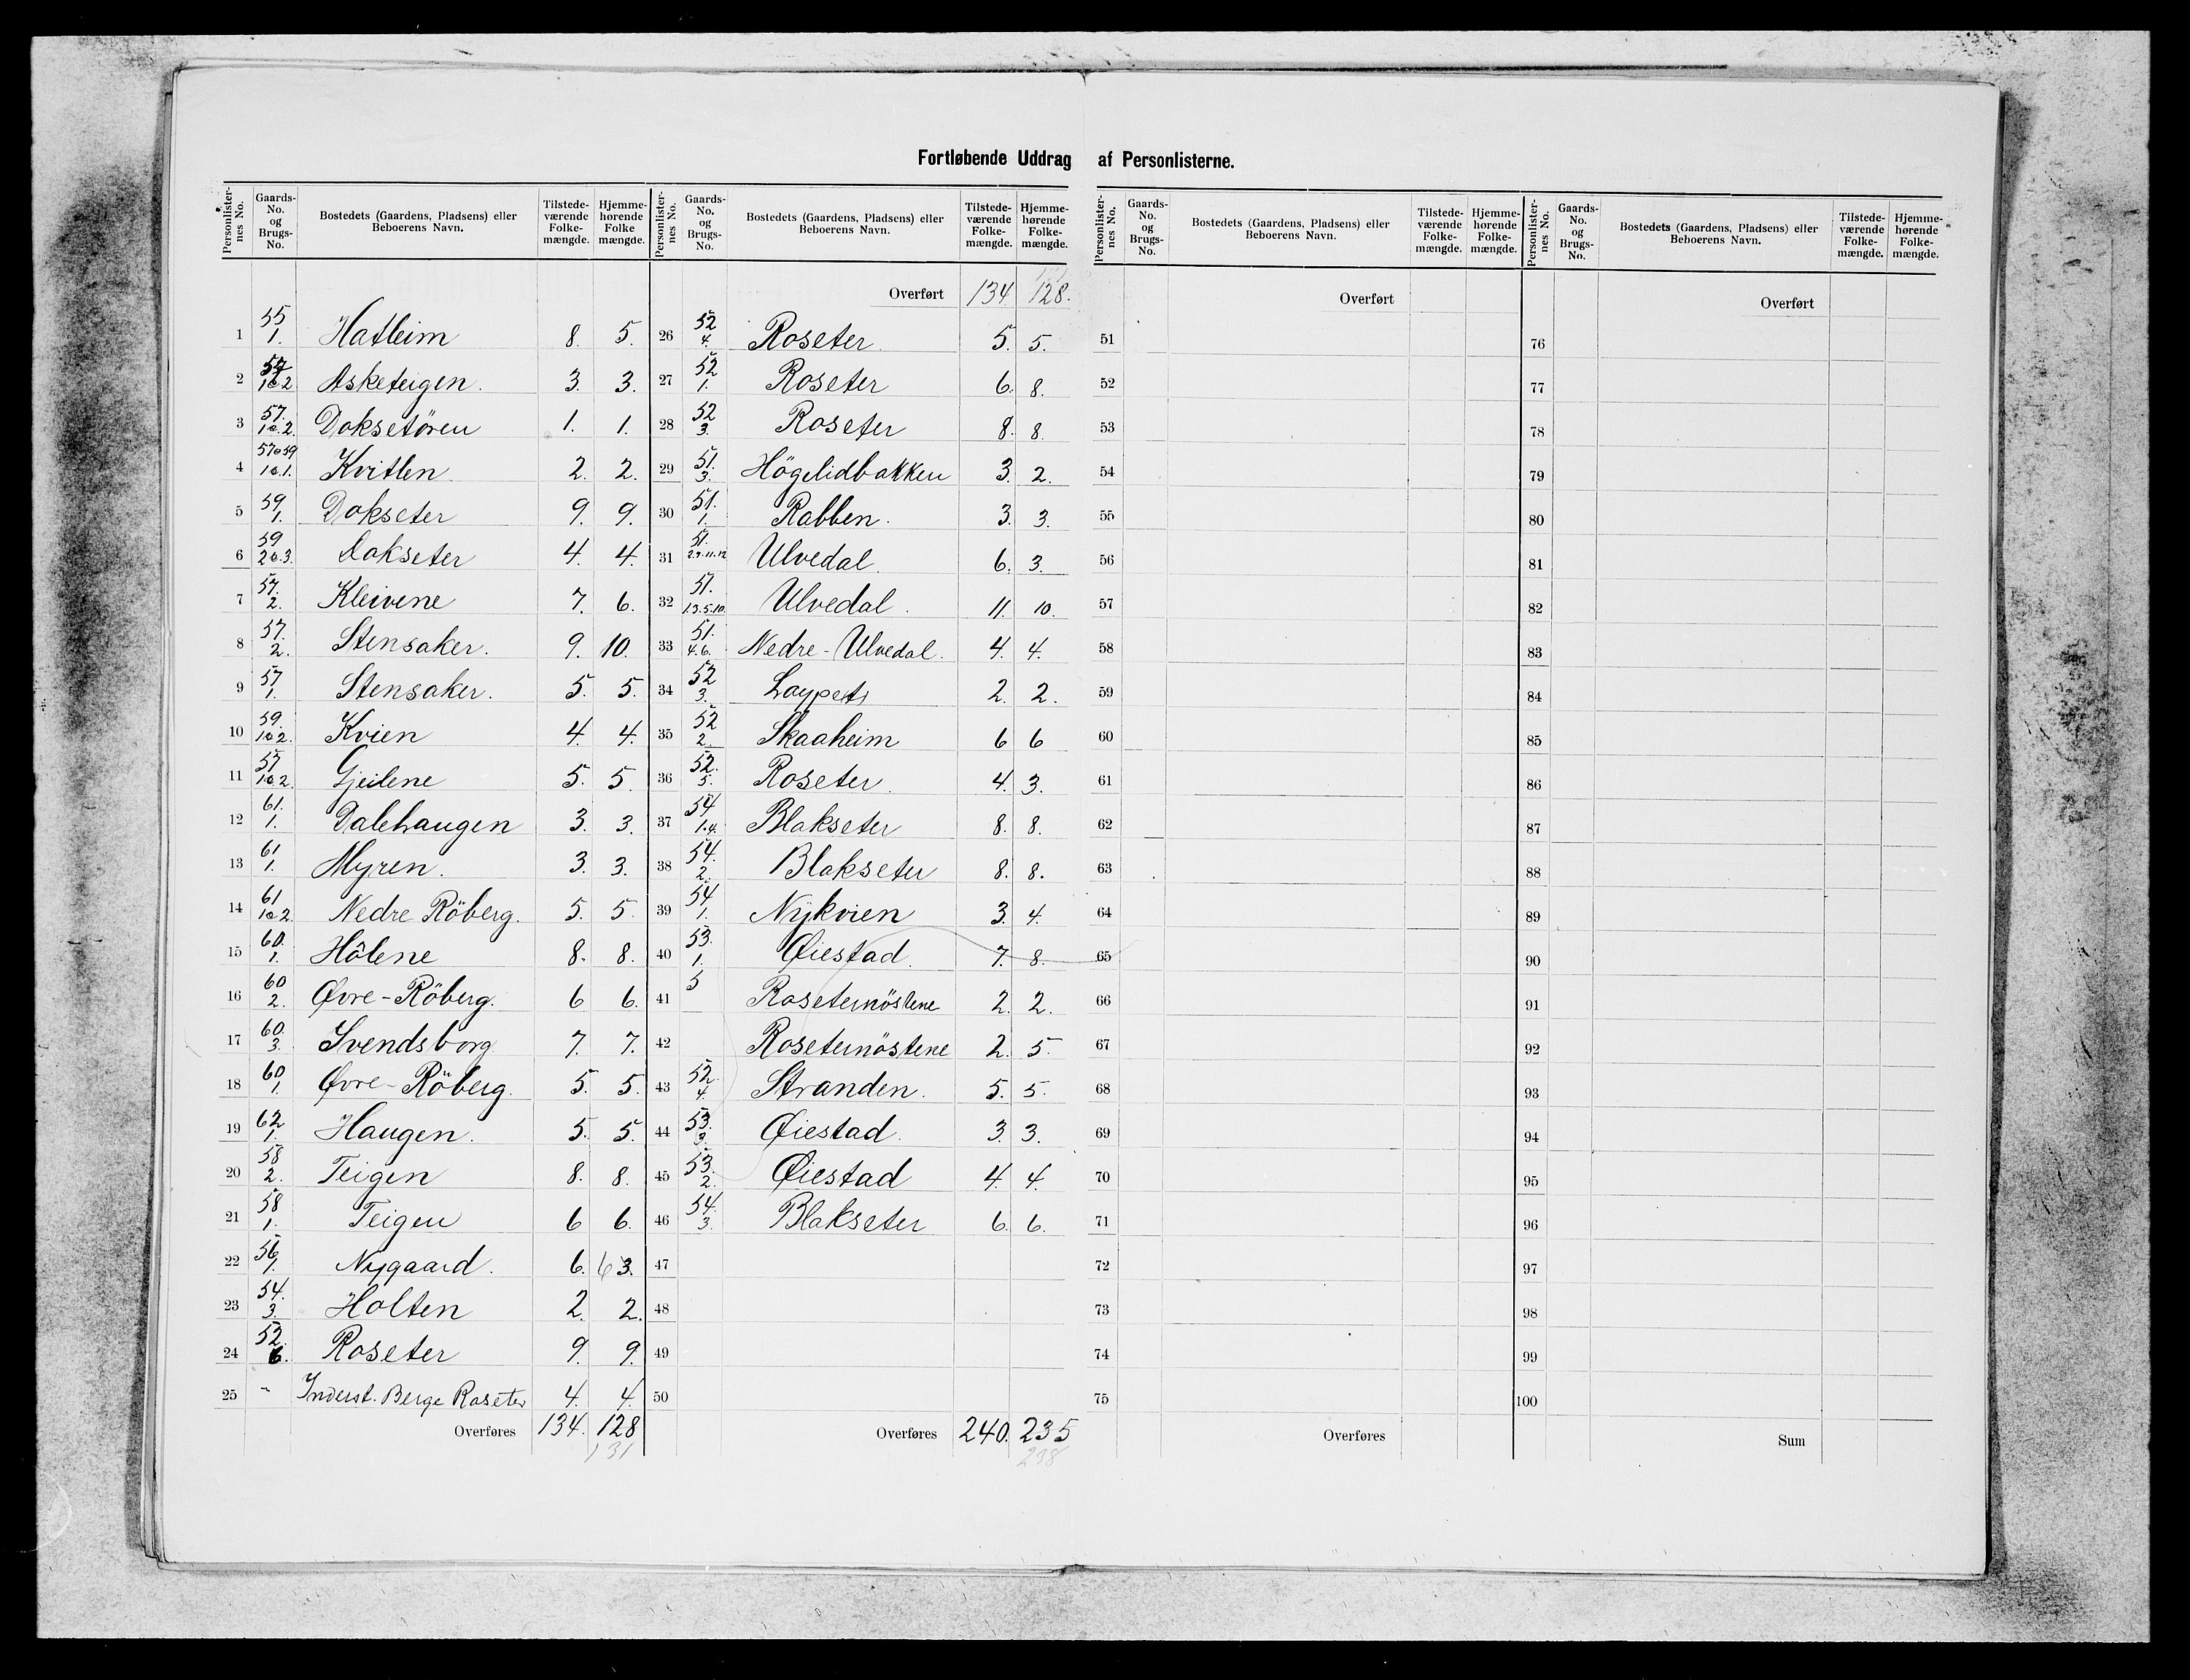 Fortløbende Uddrag af Personlisterne.
Personlister-nes No. Gaards-No. og Brugs-No. Bostedets (Gaardens, Pladsens) eller Beboerens Navn. Tilstede-værende Folke-mængde. Hjemme-hørende Folke mængde.
1 55 1. Hatleim 8. 5.
2 57 1 o 2 Asketeigen. 3. 3.
3 57. 1 o. 2. Doksetören 1. 1.
4 57 o 59 1 o. 1. Kvitlen 2. 2.
5 59 1. Dokseter 9. 9.
6 59 2 o. 3. Dokseter 4. 4.
7 57. 2. Kleivene 7. 6.
8 57. 2. Stensaker. 9. 10.
9 57 1. Stensaker. 5. 5.
10 59. 1 o 2. Kvien 4. 4.
11 57 1 o 2. Gjeilene 5. 5.
12 61. 1. Dalehaugen 3. 3.
13 61 1. Myren. 3. 3.
14 61 1 o 2. Nedre Röberg. 5. 5.
15 60. 1. Hôlene 8. 8.
16 60 2. Øvre-Röberg. 6 6.
17 60. 3. Svendsborg 7. 7.
18 60 1. Øvre-Röberg. 5. 5.
19 62 1. Haugen. 5. 5.
20 58 2. Teigen 8. 8.
21 58 1. Teigen 6 6.
22 56 1. Nygaard. 6. 6 3.
23 54. 3. Holten 2. 2.
24 52. 6. Roseter 9. 9.
25 - Inderst. Berge Roseter 4. 4.
Overføres 134. 128
131
Personlister-nes No. Gaards-No. og Brugs-No. Bostedets (Gaardens, Pladsens) eller Beboerens Navn. Tilstede-værende Folke-mængde. Hjemme-hørende Folke-mængde.
Overført 134 128.
26 52 4. Roseter. 5. 5.
27 52 1. Roseter 6. 8.
28 52 3. Roseter 8. 8.
29 51. 3. Högelidbakken 3. 2.
30 51. 1. Rabben. 3. 3.
31 51. Ulvedal. 6. 3.
32 51. 1.3.5.10. Ulvedal. 11. 10.
33 51. 4.6. Nedre-Ulvedal. 4. 4.
34 52 3. 2. 2.
35 52 2. Skaaheim 6 6
36 52. 5. Roseter. 4. 3.
37 54 1.4. Blakseter 8. 8.
38 54. 2. Blakseter 8. 8.
39 54 1. Nykvien 3. 4.
40 53. 1. Øiestad. 7. 8.
41 5 Roseternöstene 2. 2.
42 Roseternöstene 2. 5.
43 52. 4. Stranden. 5. 5.
44 53. 3. Øiestad. 3. 3.
45 53. 2. Øiestad 4. 4.
46 54. 3. Blakseter 6. 6.
47
48
49
50
Overføres 240. 235
238
Personlister-nes No. Gaards-No. og Brugs-No. Bostedets (Gaardens, Pladsens) eller Beboerens Navn. Tilstede-værende Folke-mængde. Hjemme-hørende Folke-mængde.
Overført
51
52
53
54
55
56
57
58
59
60
61
62
63
64
65
66
67
68
69
70
71
72
73
74
75
Overføres
Personlister-nes No. Gaards-No. og Brugs-No. Bostedets (Gaardens, Pladsens) eller Beboerens Navn. Tilstede-værende Folke-mængde. Hjemme-hørende Folke-mængde.
Overført
76
77
78
79
80
81
82
83
84
85
86
87
88
89
90
91
92
93
94
95
96
97
98
99
100
Sum